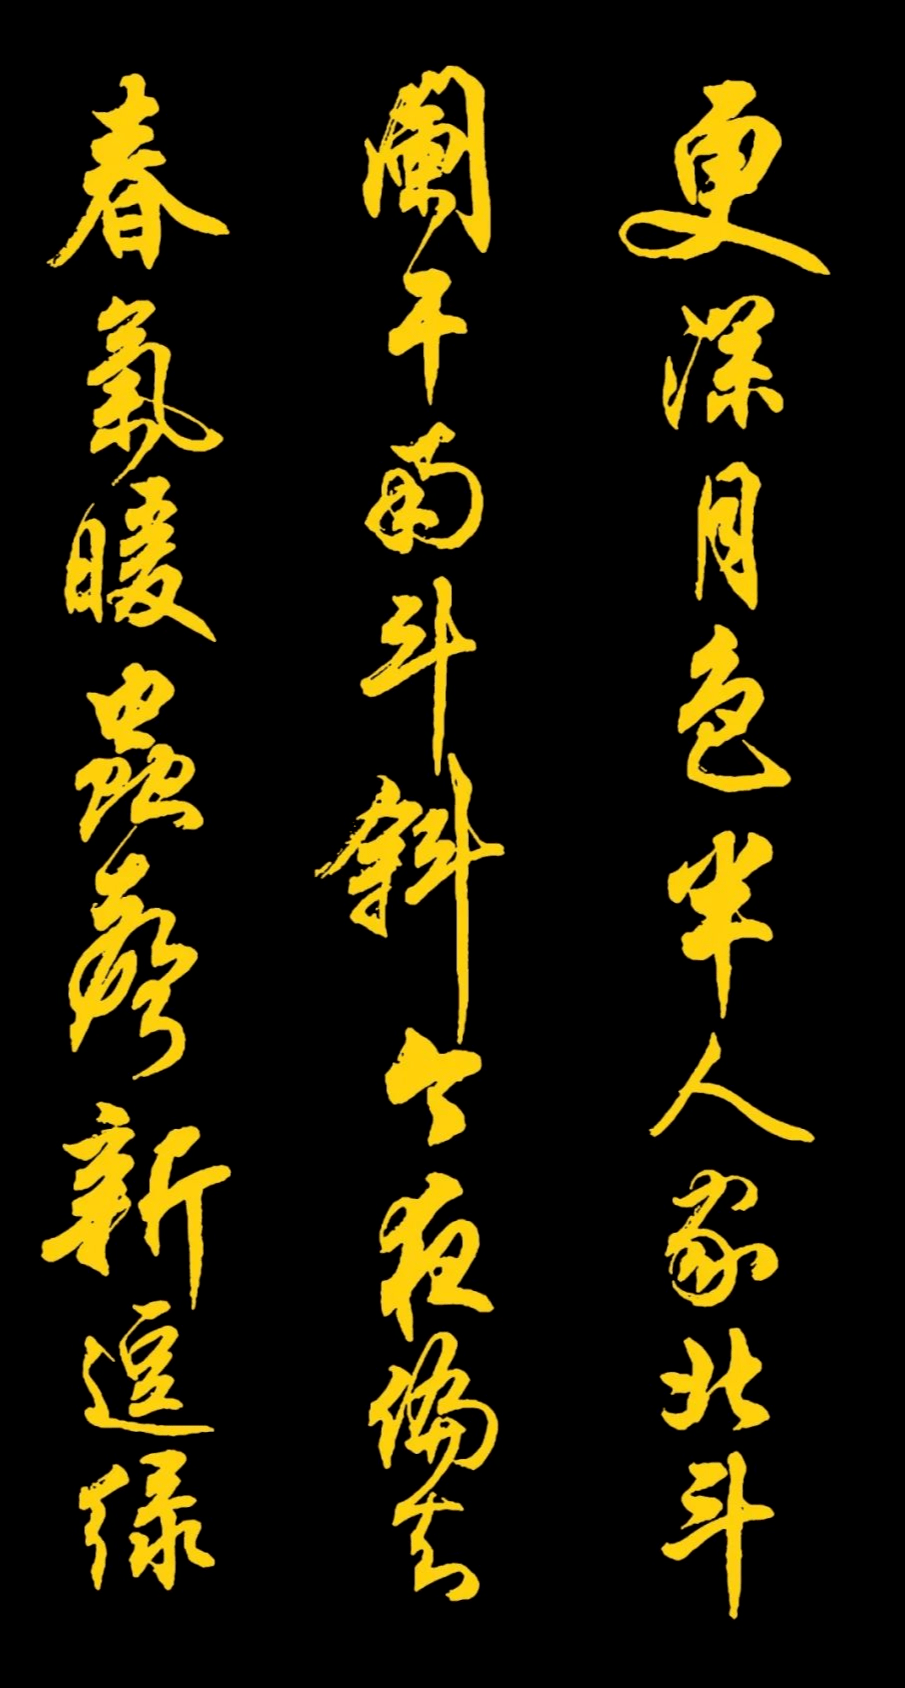 更深月色半人家北斗
闌干南斗斜今夜偏知
春氣暖蟲聲新逗綠